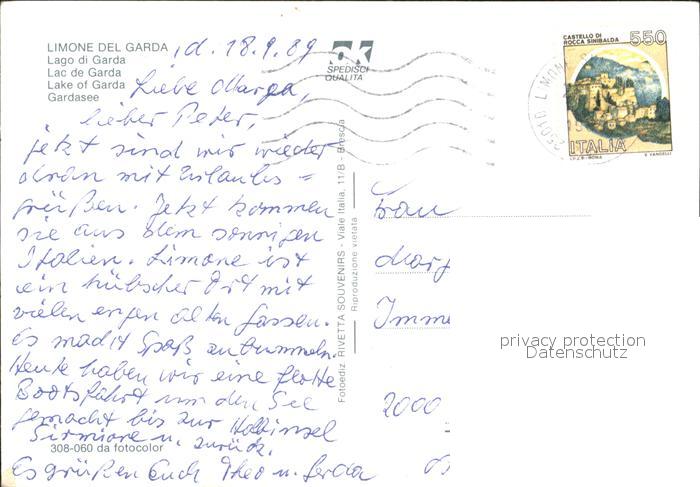 LIMONE DEL GARDA, d. 18.9.89
Lago di Garda
Lac de Garda
Lake of Garda
Gardasee
Liebe Marga,
lieber Peter,
jetzt sind wir wieder
dran mit Urlaubs=
grüßen. Jetzt kommen
sie aus dem sonnigen
Italien. Limone ist
ein hübscher Ort mit
vielen engen alten Gassen.
Es macht Spaß zu bummeln.
Heute haben wir eine flotte
Bootsfahrt um den See
gemacht bis zur Halbinsel
Sirmione u. zurück.
308-060 da fotocolor
Es grüßen Euch Theo u. Gerda
SPEDISCI
QUALITA'
Fotoediz. RIVETTA SOUVENIRS - Viale Italia, 11/B - Brescia
Riproduzione vietata
CASTELLO DI
ROCCA SINIBALDA
550
ITALIA
I.P.Z.S.-ROMA
E. VANGELLI
25010 LIMONE
Frau
Marg
Imme
2000
privacy protection
Datenschutz